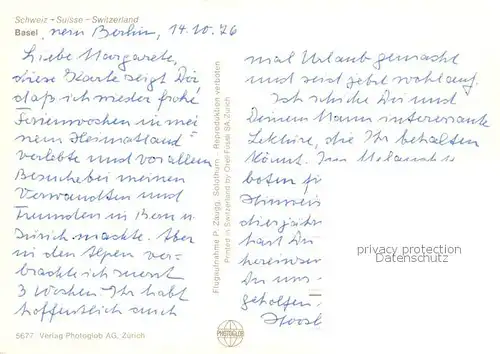 Schweiz - Suisse - Switzerland
Basel, nein Berlin, 14.10.76
Liebe Margarete,
diese Karte zeigt Dir
daß ich wieder frohe
Ferienwochen in mei-
nem Heimatland
verlebte und vor allem
Besuche bei meinen
Verwandten und
Freunden in Bern u
Zürich machte. Aber
in den Alpen ver-
brachte ich
3 Wochen. Ihr habt
hoffentlich auch
5677 Verlag Photoglob AG, Zürich
Flugaufnahme P. Zaugg, Solothurn - Reproduktion verboten
Printed in Switzerland by Orell Füssli SA Zürich
PHOTOGLOB
mal Urlaub gemacht
und seid jetzt wohlauf.
Ich schicke Dir und
Deinem Mann interessante
Lektüre, die Ihr behalten
könnt.
boten
hast Du
Du uns
geholfen
privacy protection
Datenschutz